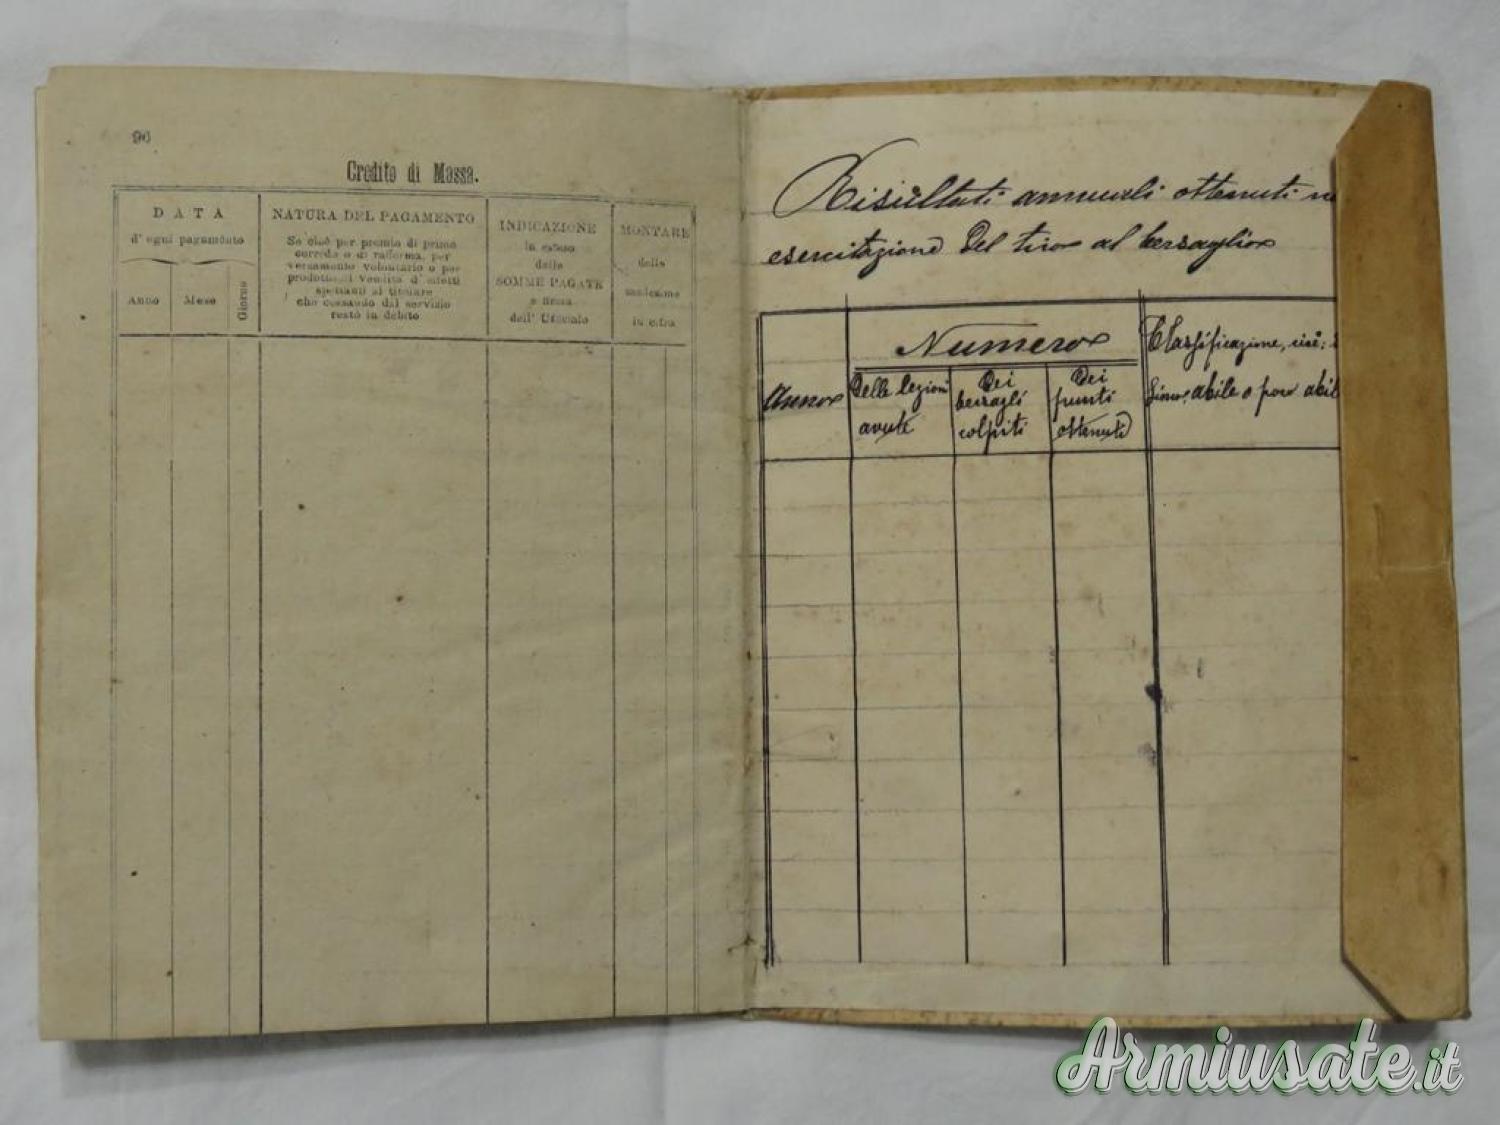 96
Credito di Massa.
DATA
d' ogni pagamento
Anno
Mese
Giorno
NATURA DEL PAGAMENTO
Se cioè per premio di primo
corredo o di rafferma, per
versamento volontario o per
prodotto di vendita d' effetti
spettanti al titolare
che cessando dal servizio
restò in debito
INDICAZIONE
in esteso
delle
SOMME PAGATE
e firma
dell' Ufficiale
MONTARE
delle
medesime
in cifra
Risultati annuali ottenuti
esercitazione del tiro al bersaglio
Anno
Numero
Delle lezioni
avute
Dei
bersagli
colpiti
Dei
punti
ottenuti
Classificazione, cioè:
abile o poco abil
Armiusate.it